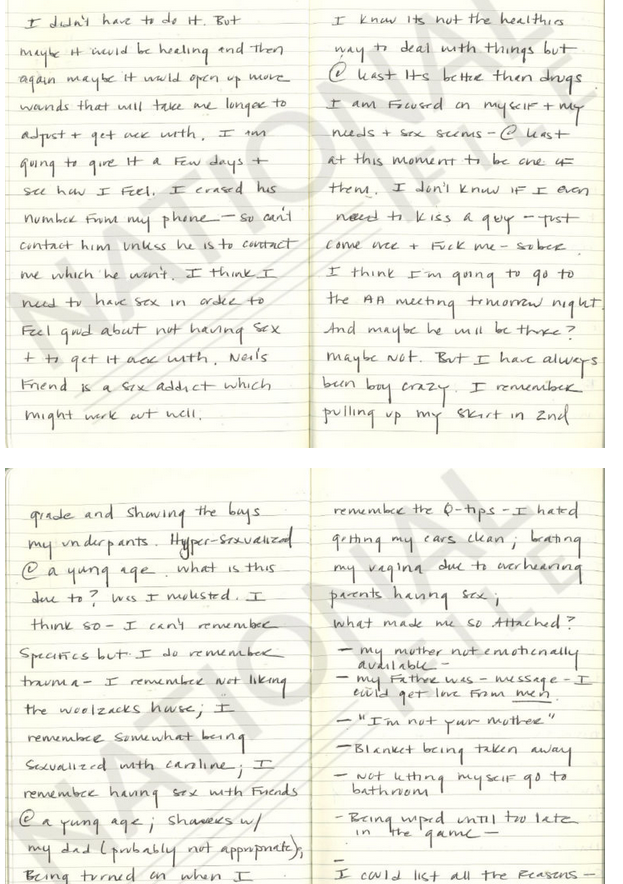 I didn't have to do it. But
maybe it would be healing and then
again maybe it would open up more
wounds that will take me longer to
adjust + get over with. I am
going to give it a few days +
see how I feel. I erased his
number from my phone - so can't
contact him unless he is to contact
me which he won't. I think I
need to have sex in order to
feel good about not having sex
+ to get it over with. Neil's
friend is a sex addict which
might work out well.
I know its not the healthies
way to deal with things but
@ least its better then drugs
I am focused on myself + my
needs + sex seems - @ least
at this moment to be one of
them. I don't know if I even
need to kiss a guy - just
come over + fuck me - sober.
I think I'm going to go to
the AA meeting tomorrow night.
And maybe he will be there?
maybe not. But I have always
been boy crazy. I remember
pulling up my skirt in 2nd
grade and showing the boys
my underpants. Hyper-sexualized
@ a yung age. what is this
due to? was I molested. I
think so - I can't remember
specifics but I do remember
trauma - I remember not liking
the woolzacks house; I
remember somewhat being
sexualized with caroline; I
remember having sex with friends
@ a yung age; showers w/
my dad (probably not appropriate);
Being turned on when I
remember the Q-tips - I hated
getting my ears clean; beating
my vagina due to overhearing
parents having sex;
what made me so Attached?
- my mother not emotionally
available -
- my Father was - message - I
could get love from men.
- "I'm not your mother"
- Blanket being taken away
- not letting myself go to
bathroom
- Being wiped until too late
in the game -
-
I could list all the reasons -
NATIONAL
FILE
NATIONAL
FILE